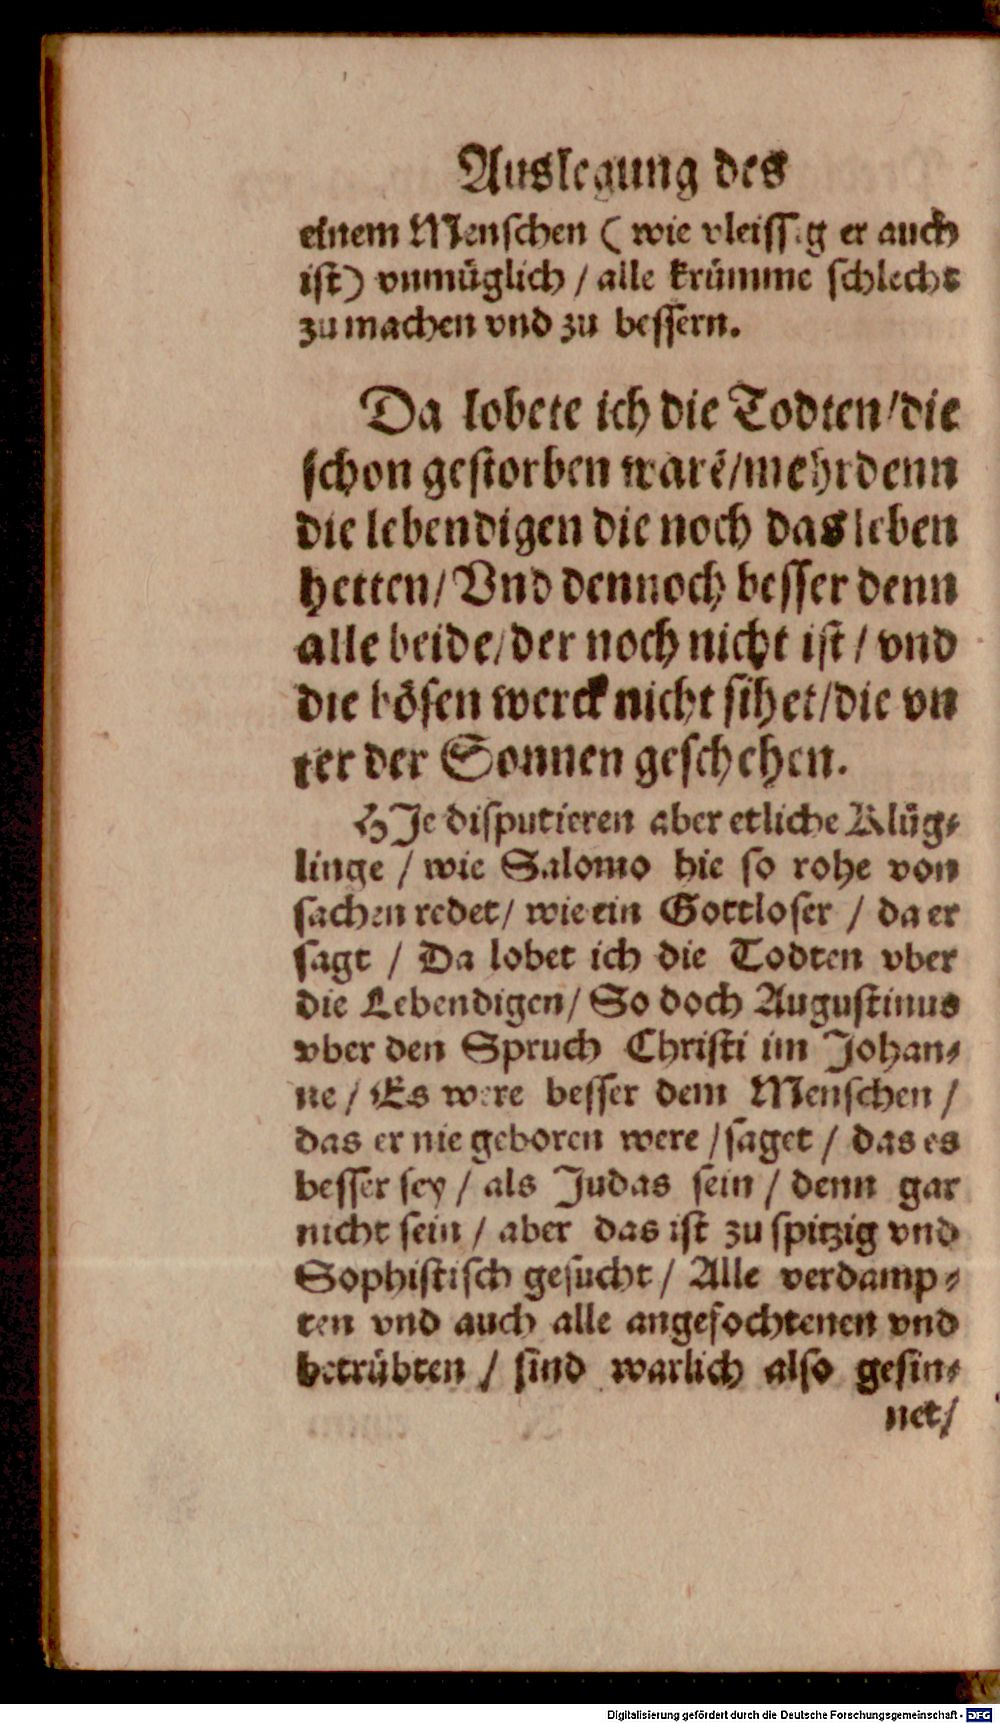 Auslegung des
einem Menschen ( wie vleissig er auch
ist) vnmüglich / alle krümme schlecht
zu machen vnd zu bessern.
Da lobete ich die Todten/die
schon gestorben warē/mehr denn
die lebendigen die noch das leben
hetten/Vnd dennoch besser denn
alle beide/der noch nicht ist / vnd
die bösen werck nicht sihet/die vn
ter der Sonnen geschehen.
HJe disputieren aber etliche Klüg⸗
linge / wie Salomo hie so rohe von
sachen redet/ wie ein Gottloser / da er
sagt / Da lobet ich die Todten vber
die Lebendigen/ So doch Augustinus
vber den Spruch Christi im Johan⸗
ne / Es were besser dem Menschen /
das er nie geboren were /saget / das es
besser sey / als Judas sein / denn gar
nicht sein / aber das ist zu spitzig vnd
Sophistisch gesucht / Alle verdamp⸗
ten vnd auch alle angefochtenen vnd
betrübten / sind warlich also gesin⸗
net/
Digitalisierung gefördert durch die Deutsche Forschungsgemeinschaft - DFG